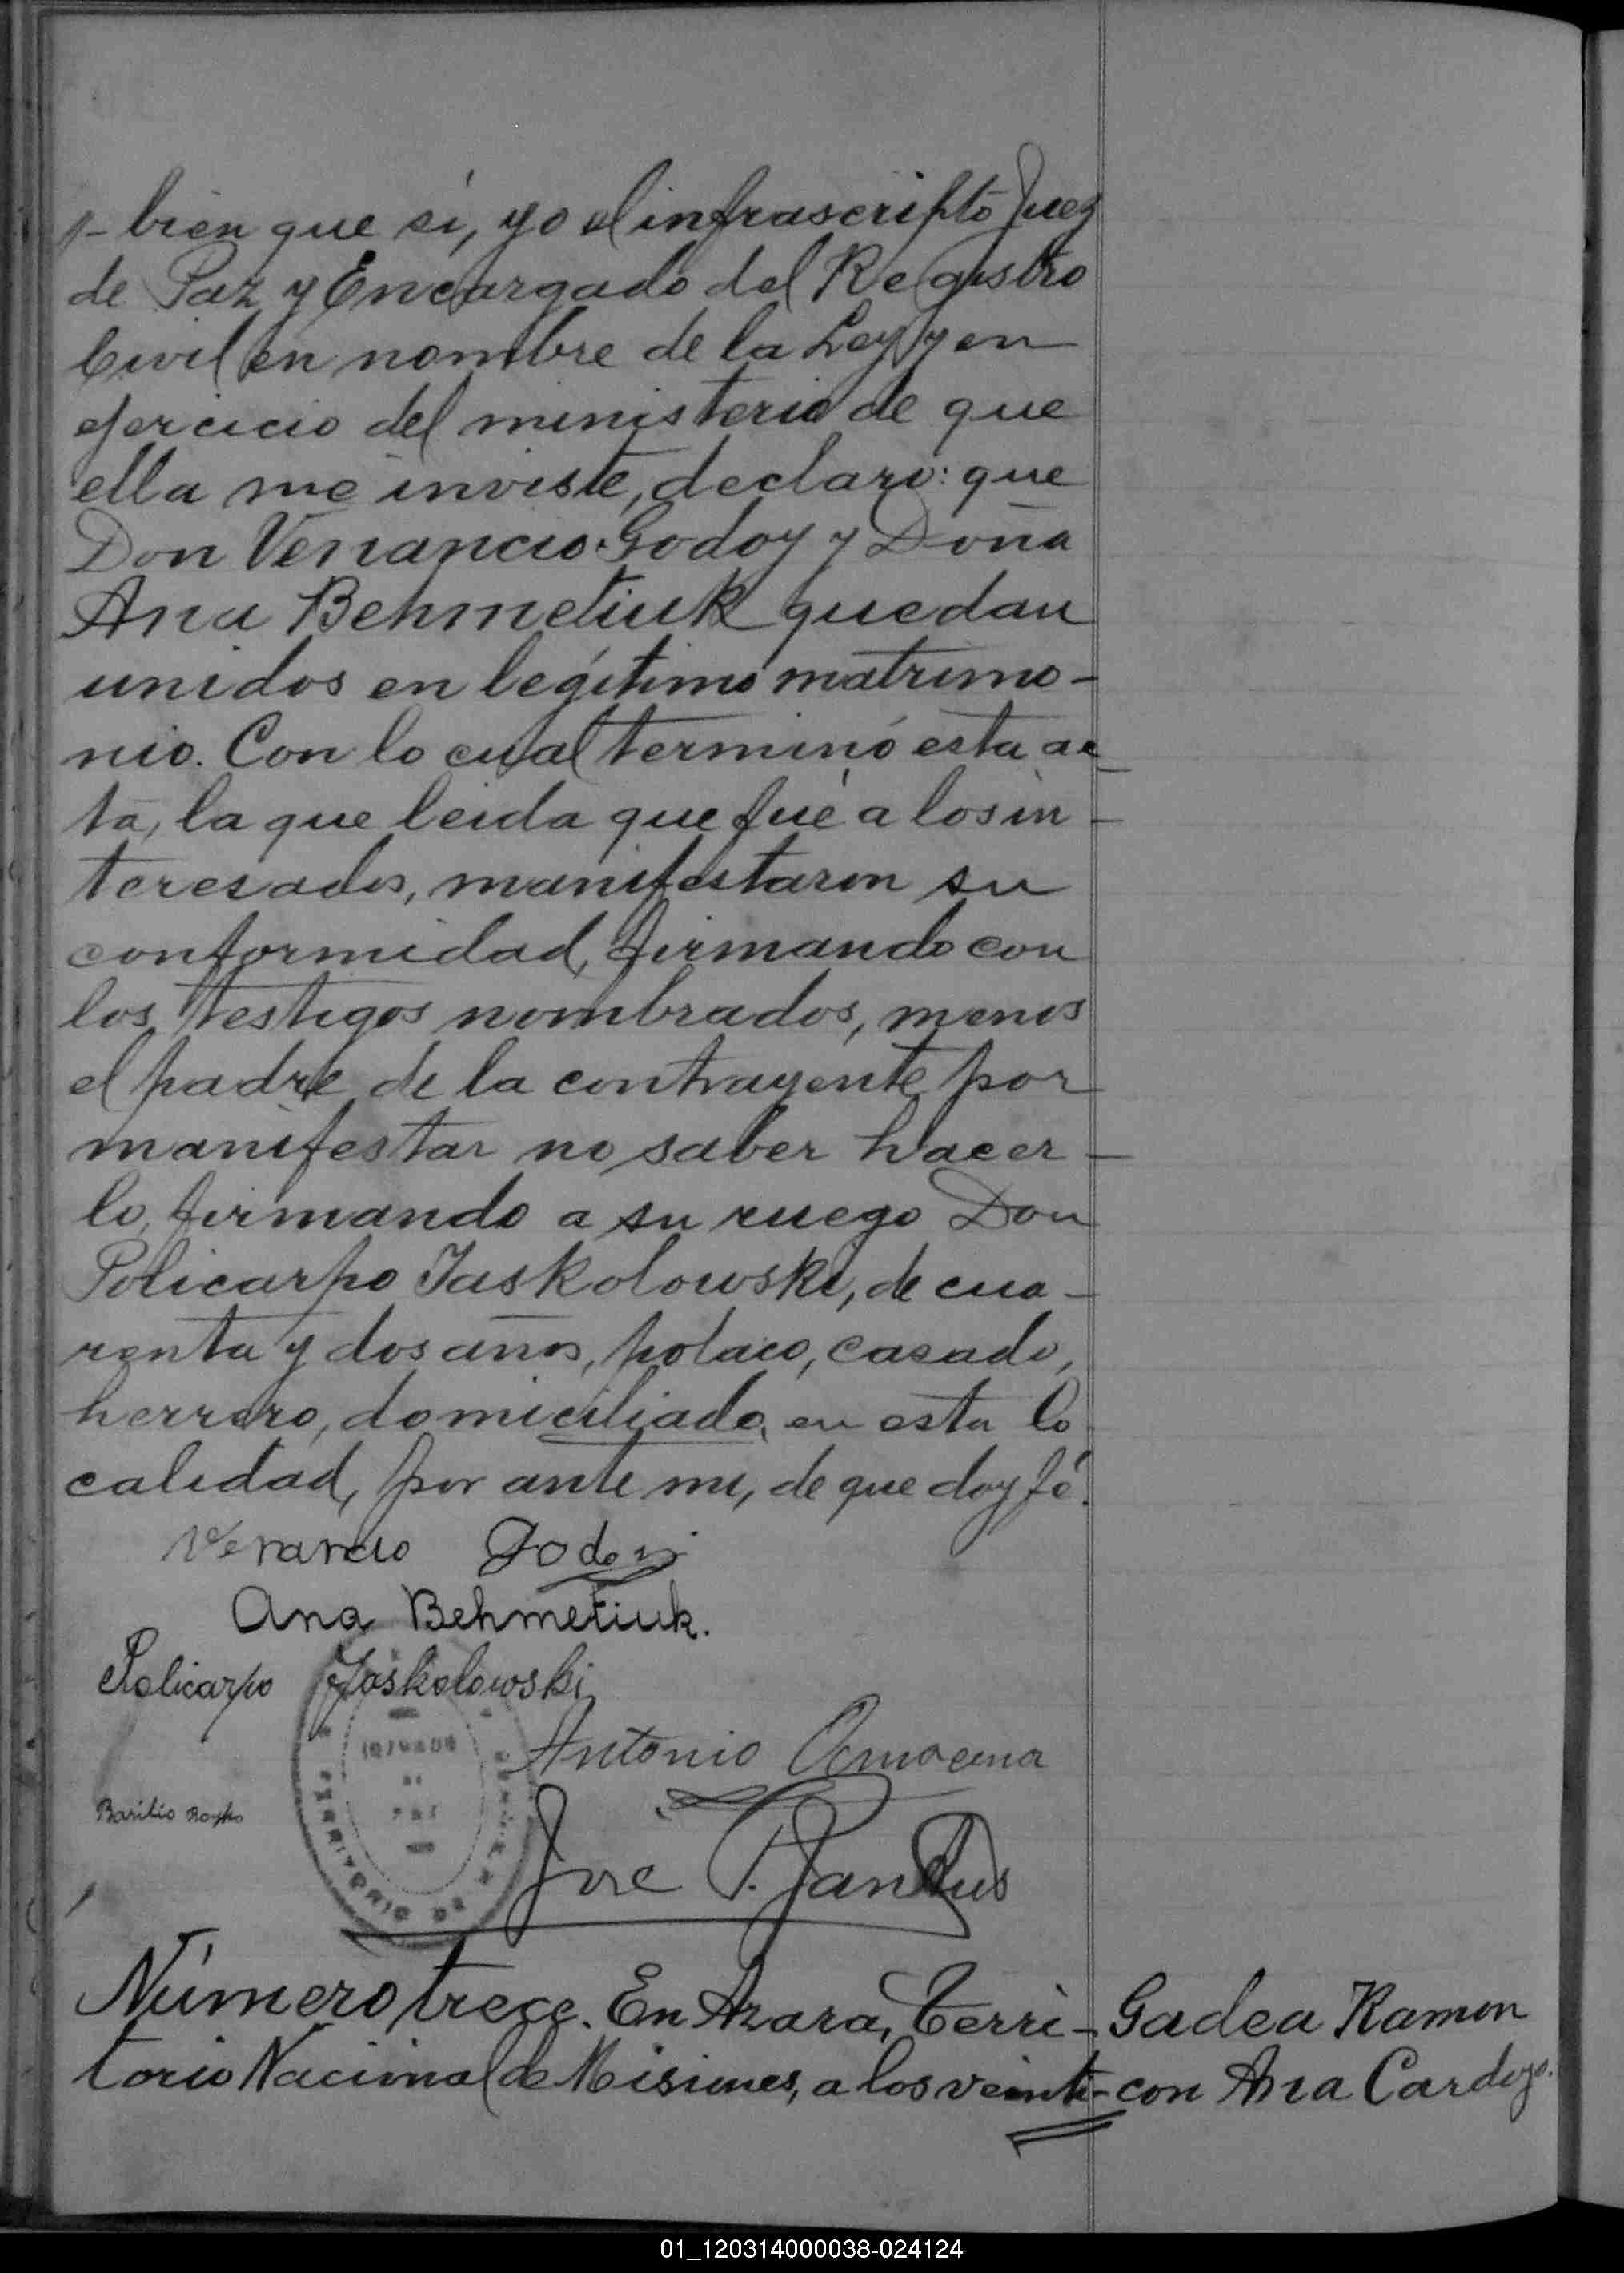 bien que sí, yo el infrascripto Juez
de Paz y Encargado del Registro
Civil en nombre de la Ley y en
ejercicio del ministerio de que
ella me inviste, declaro: que
Don Venancio Godoy y Doña
Ana Behmetiuk quedan
unidos en legítimo matrimo-
nio. Con lo cual terminó esta ac-
ta, la que leida que fué a los in-
teresados, manifestaron su
conformidad, firmando con
los testigos nombrados, menos
el padre de la contrayente por
manifestar no saber hacer-
lo, firmando a su ruego Don
Policarpo Jaskolowski, de cua-
renta y dos años, polaco, casado,
herrero, domiciliado, en esta lo
calidad, por ante mi, de que doy fé.
Venancio Godoy
Ana Behmetiuk.
Policarpo Jaskolowski
Antonio
Basilio
TERRITORIO DE
Jose P.
Número trece. En Azara, Terri-
torio Nacional de Misiones, a los veinti-
Gadea Ramon
con Ana Cardozo.
01_120314000038-024124